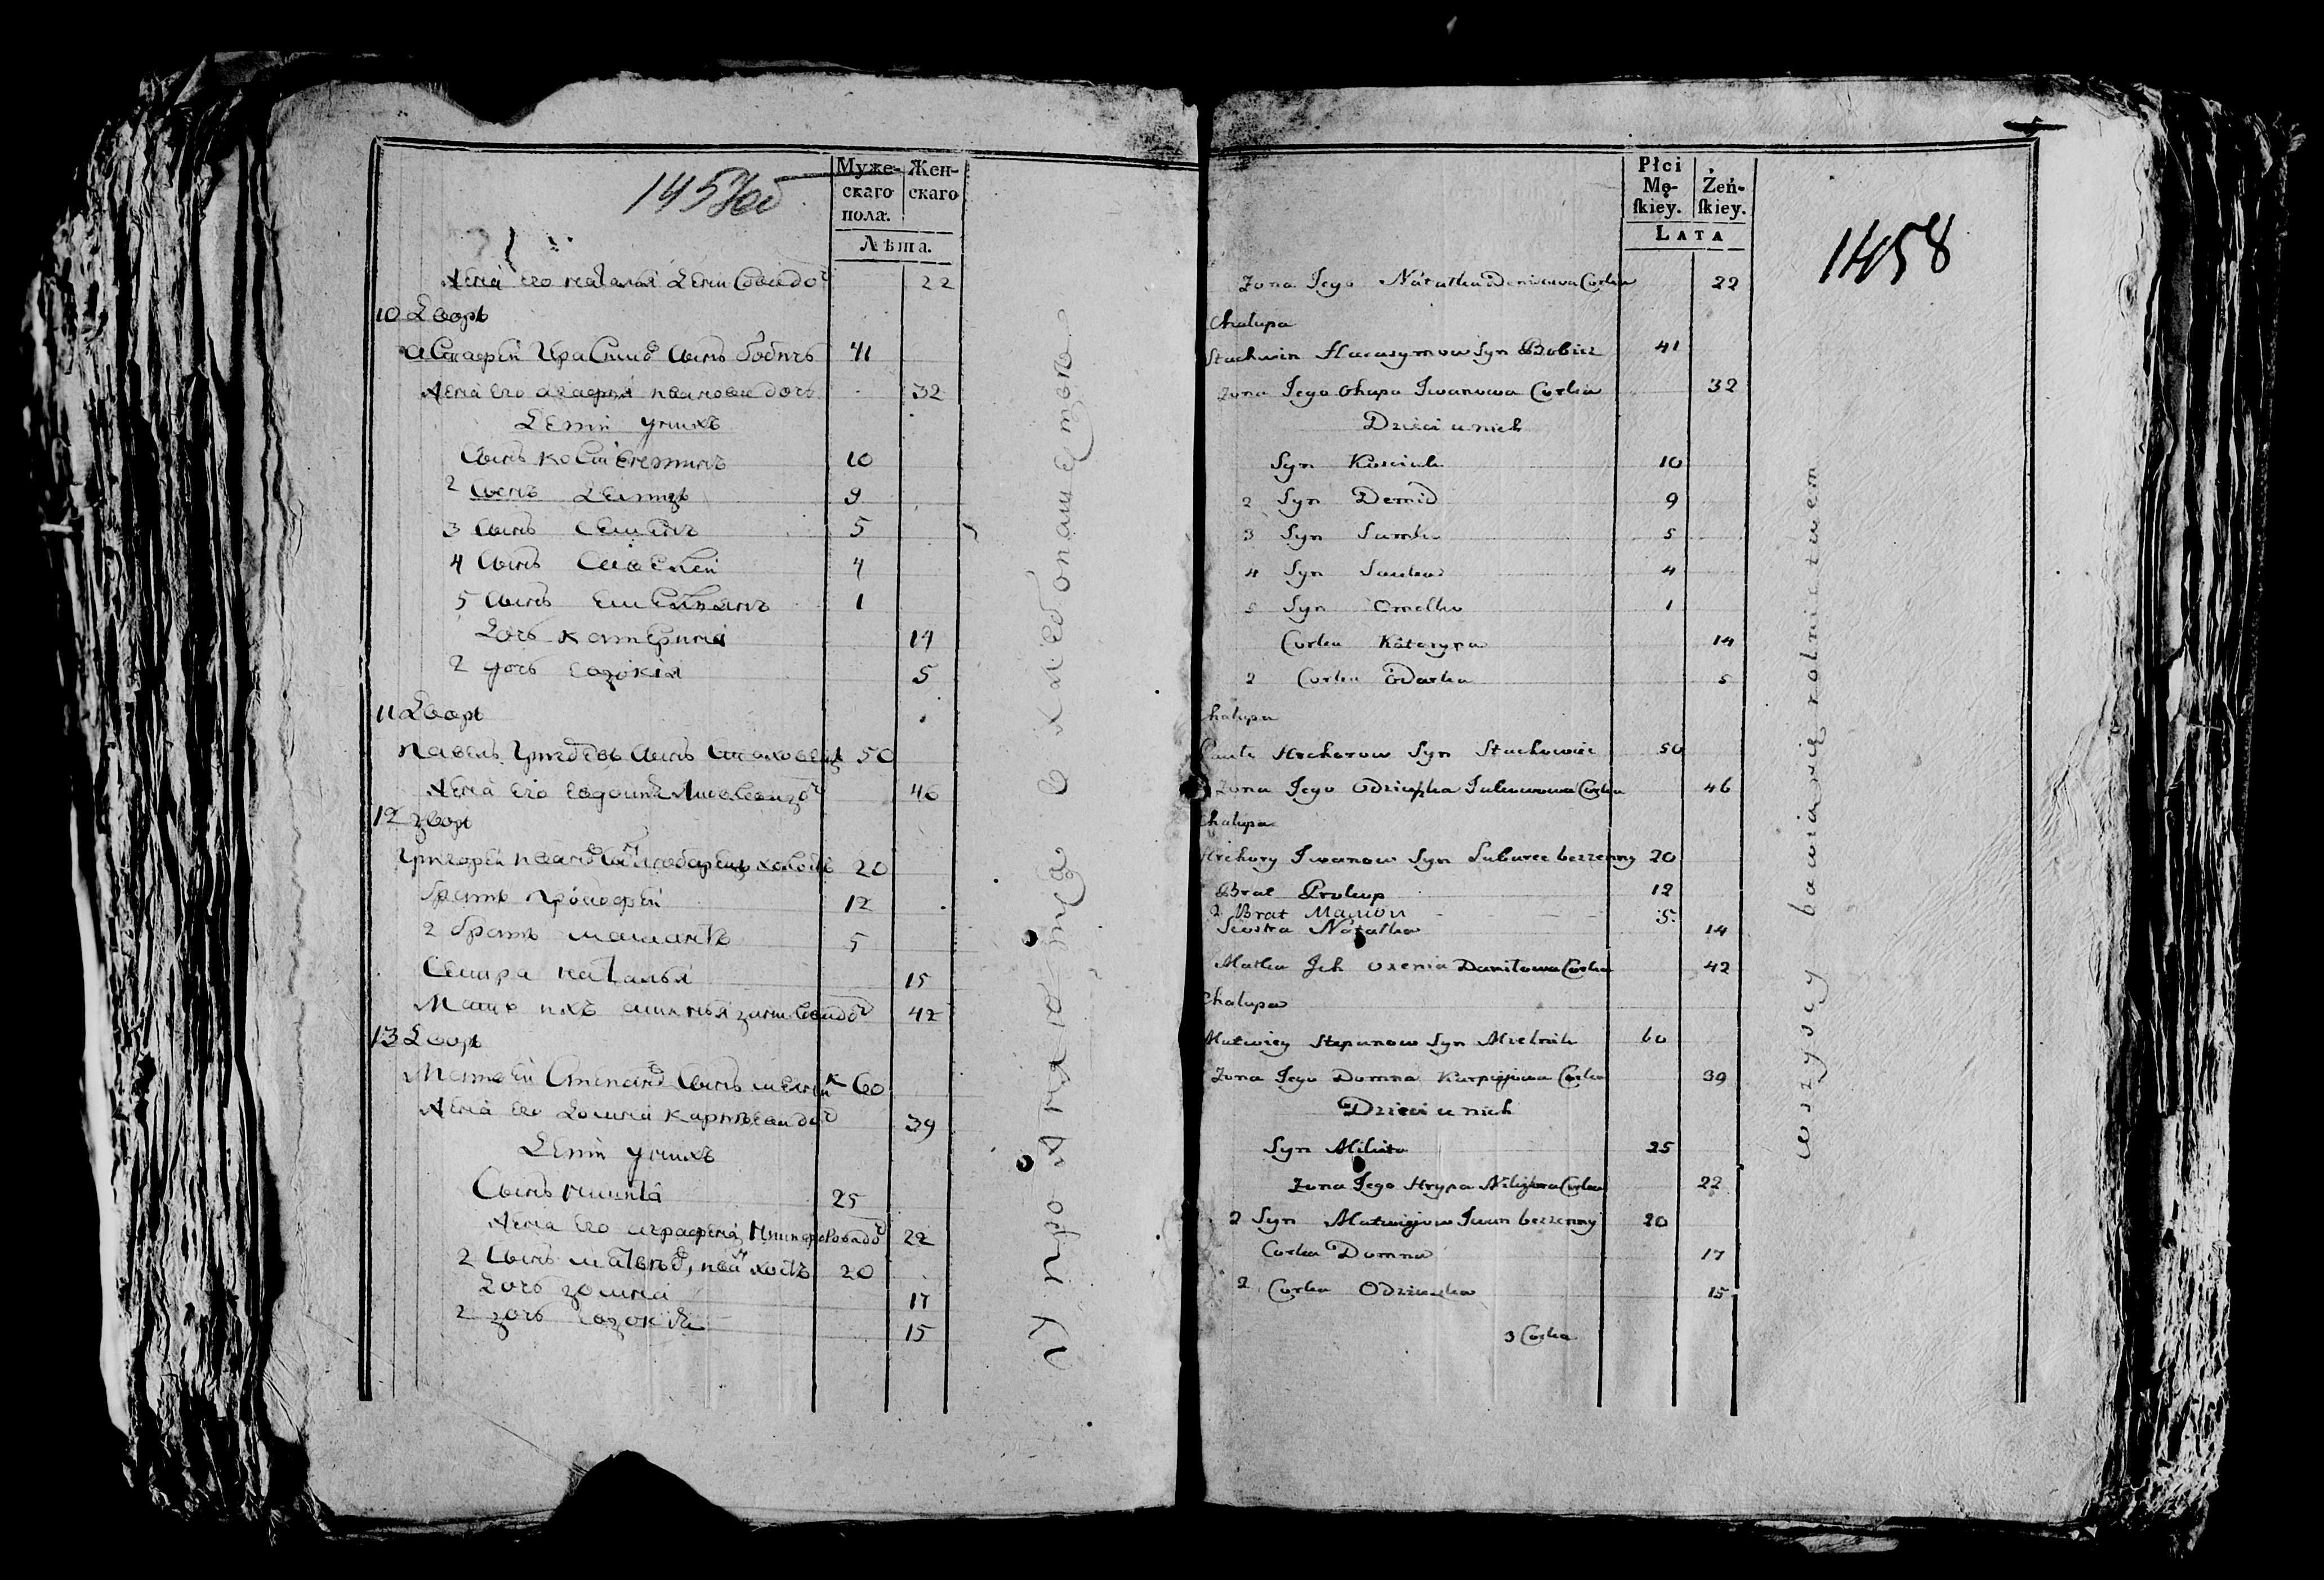 1457об
Муже-
скаго
пола.
Жен-
скаго
Лѣта.
Жена его наталья денисова доч 22
10 Дворъ
Герасимов сынъ бобичъ 41
Жена его агафья иванова дочь 32
Дети у нихъ
Сынъ константинъ 10
2 Сынъ демидъ 9
3 Сынъ семенъ 5
4 Сынъ савелей 4
5 Сынъ емельянъ 1
Дочь катерина 14
2 дочь евдокия 5
11 Дворъ
павелъ григоревъ сынъ стаховецъ 50
Жена его 46
12 двор
григорей иванов сын любарецъ холостъ 20
братъ прокофей 12
2 братъ мамантъ 5
Сестра наталья 15
Мать ихъ дочь 42
13 Дворъ
Матвей Степанов Сынъ мелник 60
Жена его Домна карпиева доч 39
Дети у нихъ
Сынъ никита 25
Жена его аграфена никифорова доч 22
2 Сынъ матвеев, иван холостъ 20
Дочь домна 17
2 дочь евдокия 15
упражняются в хлебопашестве
Płci
Mę-
ſkiey.
Żeń-
ſkiey.
LATA
1458
Zona Jego Natalka Denisowa Corka 22
Chalupa
Harasymow Syn Bobicz 41
Zona Jego Ohapa Iwanowa Corka 32
Dzieci u nich
Syn Kosciuk 10
2 Syn Demid 9
3 Syn Semko 5
4 Syn Sawka 4
5 Syn Omelko 1
Corka Kateryna 14
2 Corka Odarka 5
Chalupa
Pawlo Hrehorow Syn Stachowiec 50
Zona Jego Corka 46
Chalupa
Hrehory Iwanow Syn Lubarec bezzenny 20
Brat Prokop 12
2 Brat Мамон 5
Siostra Natalka 14
Matka Jch Oxenia Daniłowa Corka 42
Chalupa
Matwiey Stepanow Syn Mielnik 60
Zona Jego Domna Karpijowa Corka 39
Dzieci u nich
Syn Mikita 25
Zona Jego Hrypa Corka 22
2 Syn Matwijow Iwan bezzenny 20
Corka Domna 17
2 Corka Odziuska 15
3 Corka
wszyscy bawią się rolnictwem